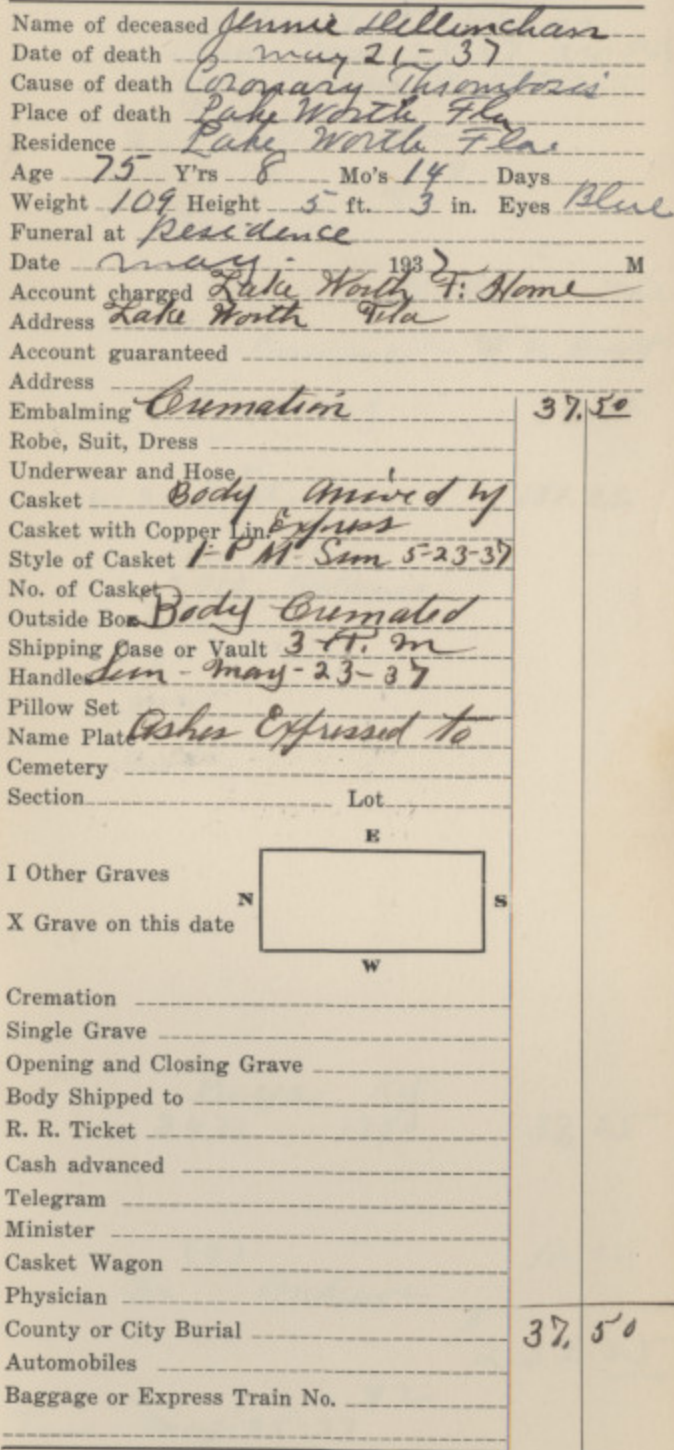 Name of deceased Jennie Dellincham
Date of death may 21 - 37
Cause of death Coronary Thrombosis
Place of death Lake Worth Fla
Residence Lake Worth Fla.
Age 75 Y'rs 8 Mo's 14 Days
Weight 109 Height 5 ft. 3 in. Eyes Blue
Funeral at Residence
Date may. 1937 M
Account charged Lake Worth F. Home
Address Lake Worth Fla
Account guaranteed
Address
Embalming Cremation 37.50
Robe, Suit, Dress
Underwear and Hose
Casket Body Arrived by
Casket with Copper Lin. Express
Style of Casket 1 - P M - Sun 5-23-37
No. of Casket
Outside Box Body Cremated
Shipping Case or Vault 3 P. M
Handles Sun - May - 23 - 37
Pillow Set
Name Plate Ashes Expressed to
Cemetery
Section Lot
E
I Other Graves
N S
X Grave on this date
W
Cremation
Single Grave
Opening and Closing Grave
Body Shipped to
R. R. Ticket
Cash advanced
Telegram
Minister
Casket Wagon
Physician
County or City Burial 37. 50
Automobiles
Baggage or Express Train No.